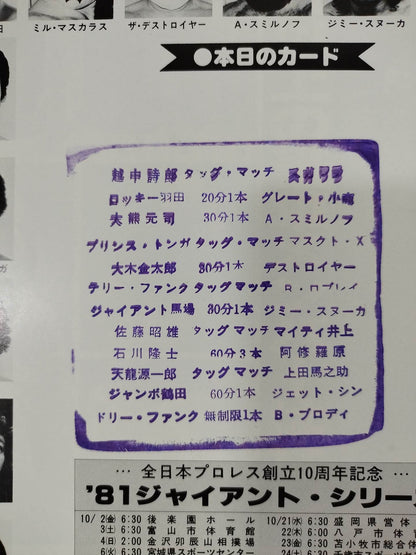 ミル・マスカラス ザ・デストロイヤー A・スミルノフ ジミー・スヌーカ
●本日のカード
越中詩郎 タッグ・マッチ
ロッキー羽田 20分1本 グレート・小鹿
大熊元司 30分1本 A・スミルノフ
プリンス・トンガ タッグ・マッチ マスクト・X
大木金太郎 30分1本 デストロイヤー
テリー・ファンク タッグマッチ
ジャイアント馬場 30分1本 ジミー・スヌーカ
佐藤昭雄 タッグマッチ マイティ井上
石川隆士 60分3本 阿修羅原
天龍源一郎 タッグマッチ 上田馬之助
ジャンボ鶴田 60分1本 ジェット・シン
ドリー・ファンク 無制限1本 B・ブロディ
… 全日本プロレス創立10周年記念 …
'81ジャイアント・シリー
10/2㊎ 6:30 後楽園ホール 10/21㊌ 6:30 盛岡県営体
3㊏ 6:30 富山市体育館 22㊍ 6:00 八戸市体
4㊐ 2:00 金沢卯辰山相撲場 23㊎ 6:30 苫小牧市総合体
6㊋ 6:30 宮城県スポーツセンター 24㊏ 6:30